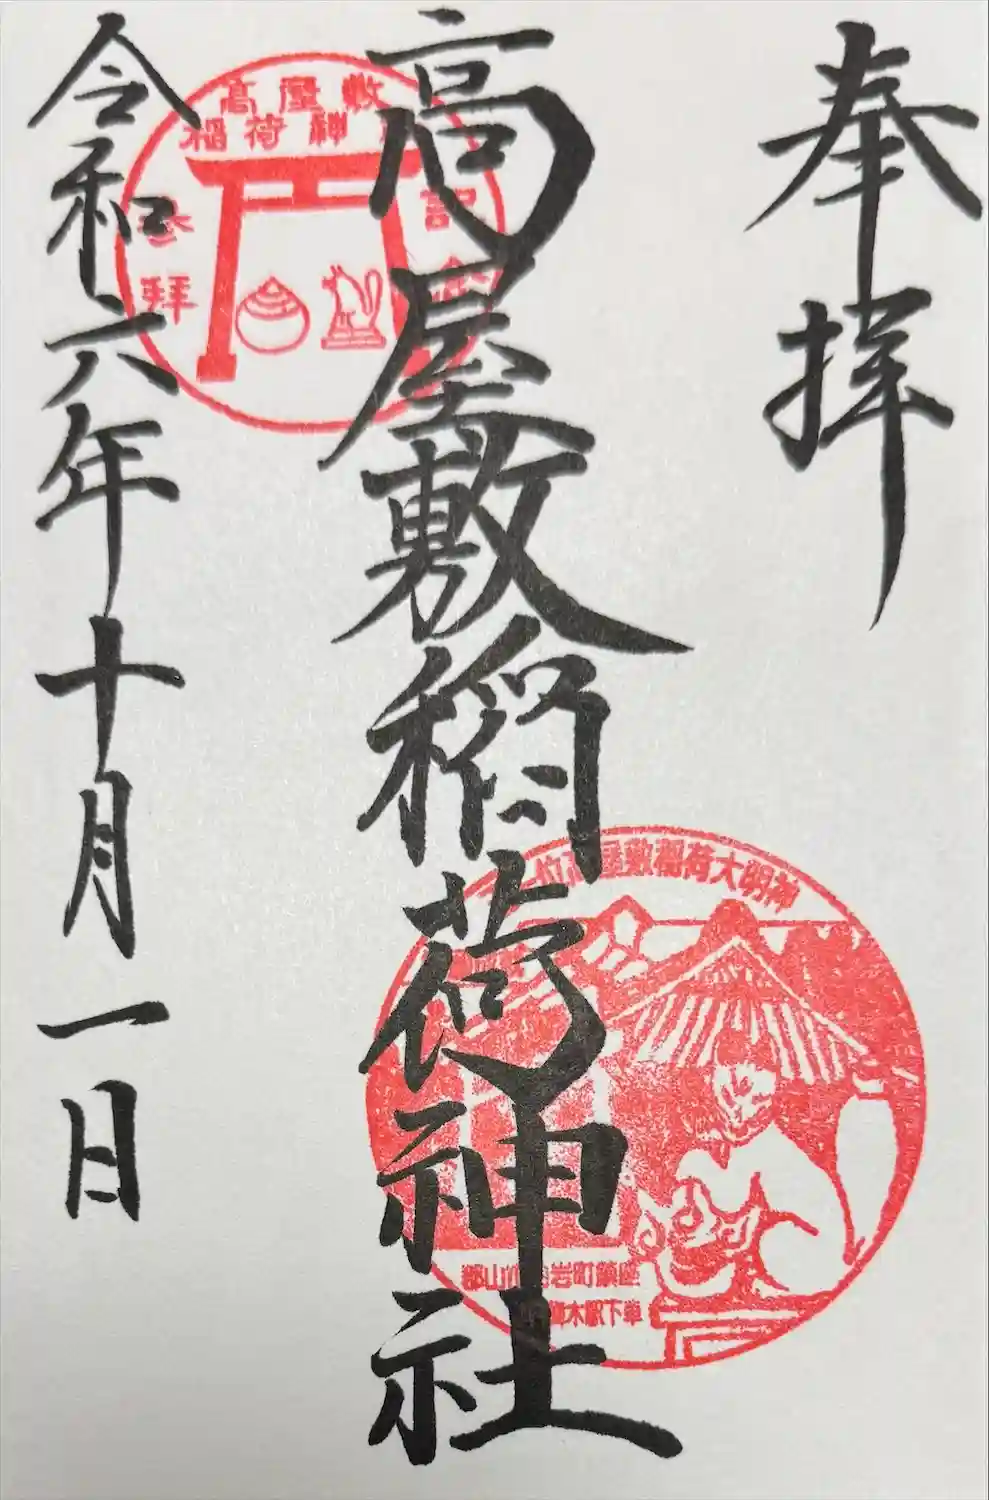 奉拝
高屋敷稲荷神社
令和六年十月一日
高屋敷
稲荷神
参拝
記念
位高屋敷稲荷大明神
郡山
岩町鎮座
木駅下車